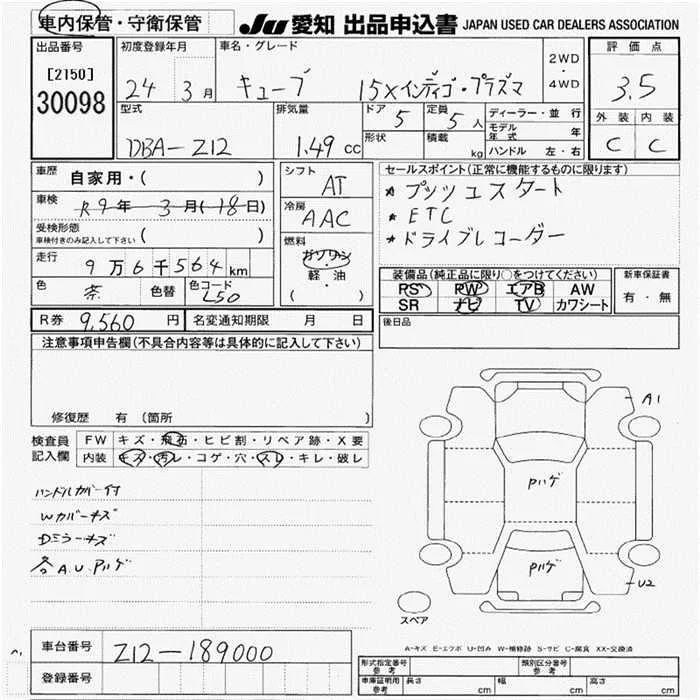 車内保管・守衛保管 JU 愛知 出品申込書 JAPAN USED CAR DEALERS ASSOCIATION
出品番号 初度登録年月 車名・グレード 2WD・4WD 評価点
[2150] 30098 24 3月 キューブ 15Xインディゴ・プラズマ 3.5
型式 排気量 ドア 5 定員 5人 ディーラー・並行 外装 内装
DBA-Z12 1.49cc 形状 積載 kg モデル年式 年 C C
ハンドル 左・右
車歴 自家用・( ) シフト AT セールスポイント(正常に機能するものに限ります)
車検 R9年 3月(18日) 冷房 AAC ＊プッシュスタート
受検形態 ( ) ＊ETC
車検付きのみ記入して下さい 燃料 ガソリン ＊ドライブレコーダー
走行 9万6千564km 軽・油 装備品(純正品に限り○をつけてください) 新車保証書
色 茶 色替 色コード L50 ( ) PS PW エアB AW 有・無
SR ナビ TV カワシート
R券 9,560円 名変通知期限 月 日 後日品
注意事項申告欄(不具合内容等は具体的に記入して下さい)
修復歴 有 (箇所 )
検査員 FW キズ・飛石・ヒビ割・リペア跡・X要
記入欄 内装 キズ・汚レ・コゲ・穴・スレ・キレ・破レ
ハンドルカバー付
Wカバーキズ
Dミラーキズ
各A.U.Pハゲ
A1
Pハゲ
Pハゲ
U2
スペア
A-キズ E-エクボ U-凹み W-補修跡 S-サビ C-腐食 XX-交換済
車台番号 Z12-189000
登録番号
形式指定番号 参考 類別区分番号 参考
車庫証明用 参考 長さ cm 幅 cm 高さ cm